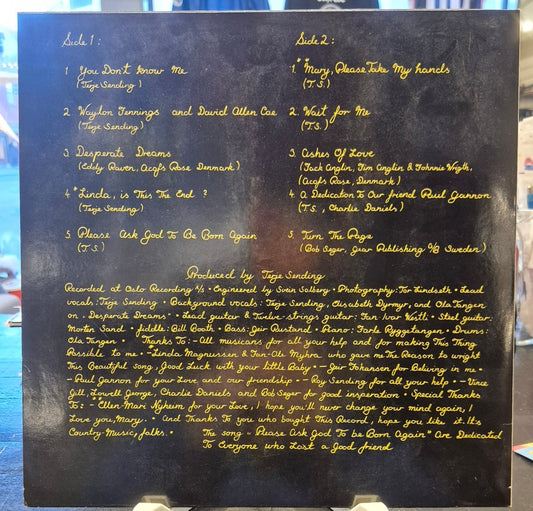 Side 1:
1 You Don't Know Me
(Terje Sending)
2 Waylon Jennings and David Allen Coe
(Terje Sending)
3 Desperate Dreams
(Eddy Raven, Acofs Rose Denmark)
4 *Linda, is This The End ?
(Terje Sending)
5 Please Ask God To Be Born Again
(T.S.)
Side 2:
1 ** Mary, Please Take My hands
(T.S.)
2 Wait for Me
(T.S.)
3 Ashes Of Love
(Jack Anglin, Jim Anglin & Johnnie Wrigth,
(Acofs Rose, Denmark)
4 A Dedication To Our friend Paul Gannon
(T.S., Charlie Daniels)
5 Turn The Page
(Bob Seger, Gear Publishing A/B Sweden)
Produced by Terje Sending
Recorded at Oslo Recording A/S • Engineered by Svein Solberg • Photography: Tor Lindseth • Lead
vocals: Terje Sending • Background vocals: Terje Sending, Elisabeth Dyrmyr, and Ola Tangen
on "Desperate Dreams" • Lead guitar & Twelve-strings guitar: Jan Ivar • Steel guitar:
Morten Sand • fiddle: Bill Booth • Bass: Geir Rustand • Piano: Jarle Ryggetangen • Drums:
Ola Tangen • Thanks To: - All musicans for all your help and for making This Thing
Possible to me • - *Linda Magnussen & Jan-Ole Myhra who gave me The Reason to wright
This Beautiful song, Good Luck with your little Baby • - Geir Johansen for Beliving in me •
- Paul Gannon for your Love and our friendship • - Roy Sending for all your help • - Vince
Gill, Lowell George, Charlie Daniels and Bob Seger for good insperation • Special Thanks
To: **Ellen Mari Nyheim for your Love, I hope you'll never change your mind again, I
Love you, Mary • And Thanks To you who bought This Record, hope you like it. It's
Country-Music, folks. • The song - Please Ask God To be Born Again" Are Dedicated
To Everyone who Lost a Good friend